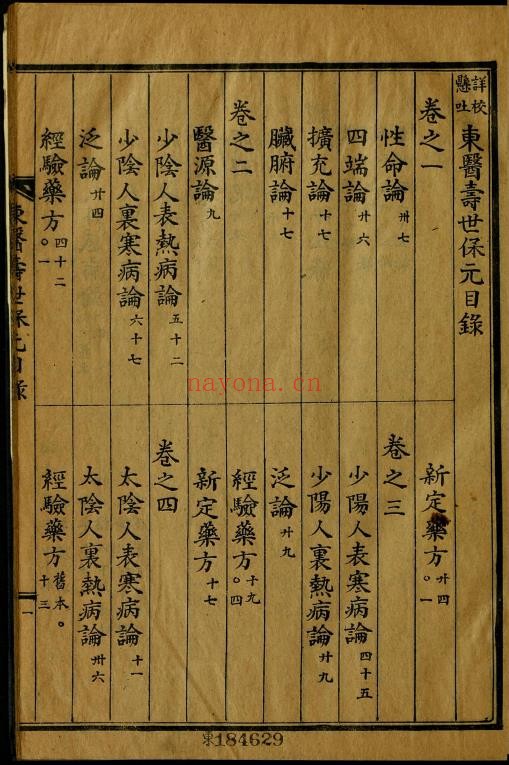 詳校懸吐 東醫壽世保元目錄
卷之一
性命論 卅七
四端論 卄六
擴充論 十七
臟腑論 十七
卷之二
醫源論 九
少陰人表熱病論 五十二
少陰人裏寒病論 六十七
泛論 卄四
經驗藥方 四十二 ○一
新定藥方 卄四 ○一
卷之三
少陽人表寒病論 四十五
少陽人裏熱病論 卄九
泛論 卄九
經驗藥方 十九 ○四
新定藥方 十七
卷之四
太陰人表寒病論 十一
太陰人裏熱病論 卅六
經驗藥方 舊本。 十三
東醫壽世保元目錄
一
nayona.cn
東184629